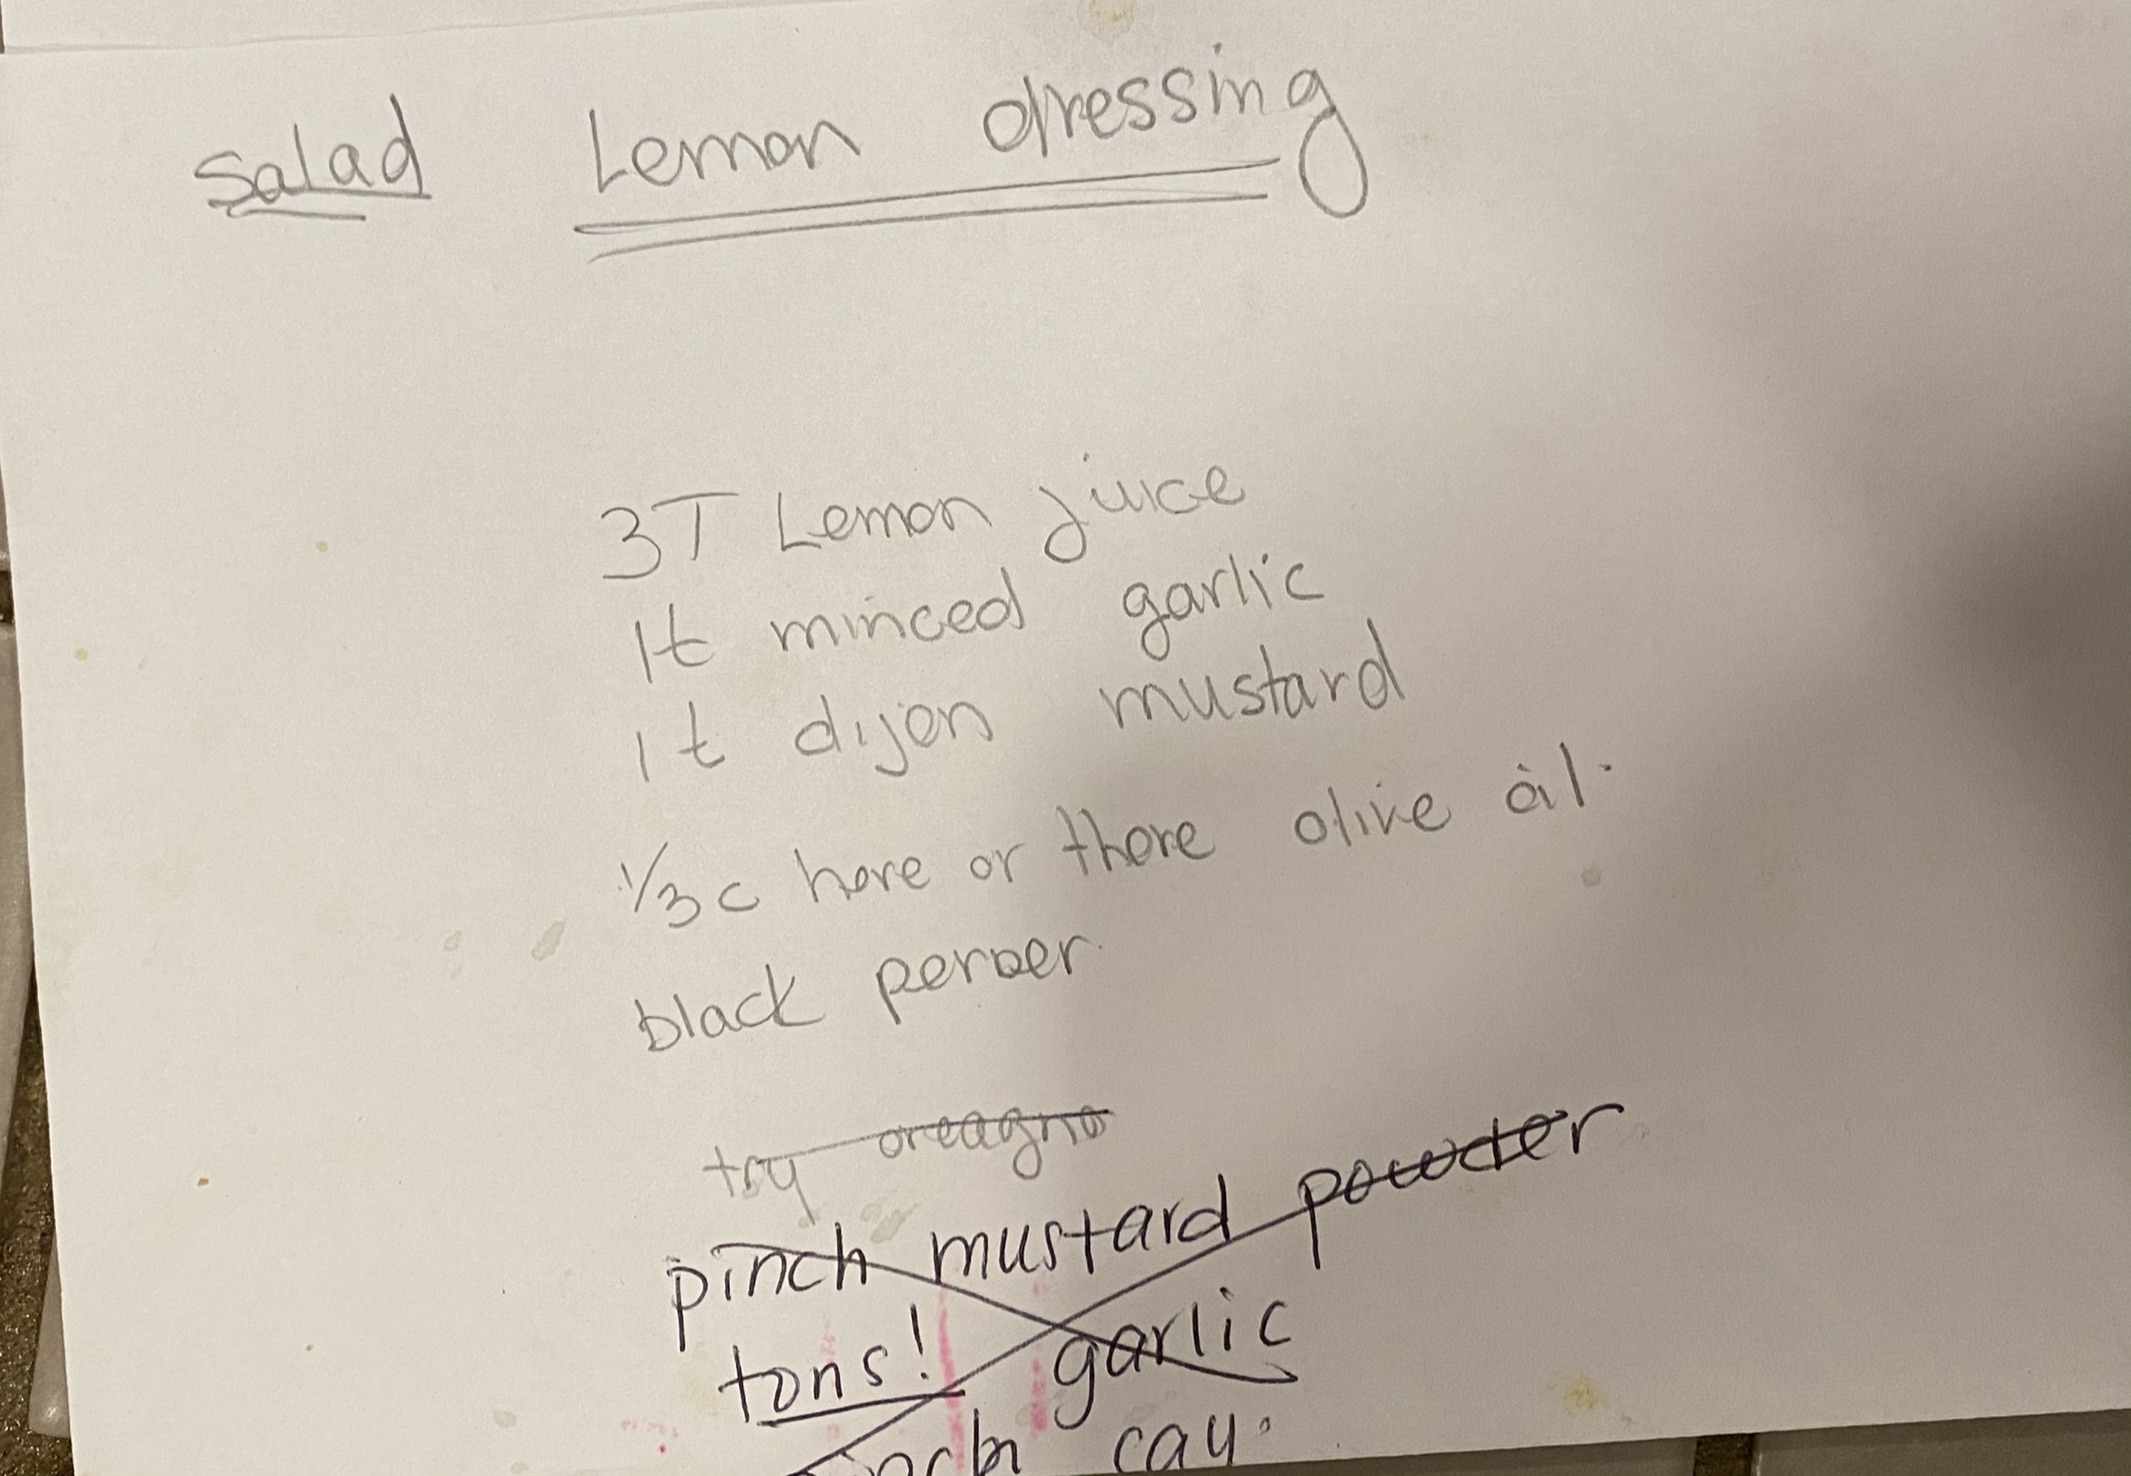 Salad Lemon dressing
3T Lemon juice
1t minced garlic
1t dijon mustard
1/3c here or there olive oil.
black perper
try oreagno
pinch mustard powder
tons! garlic
cay.